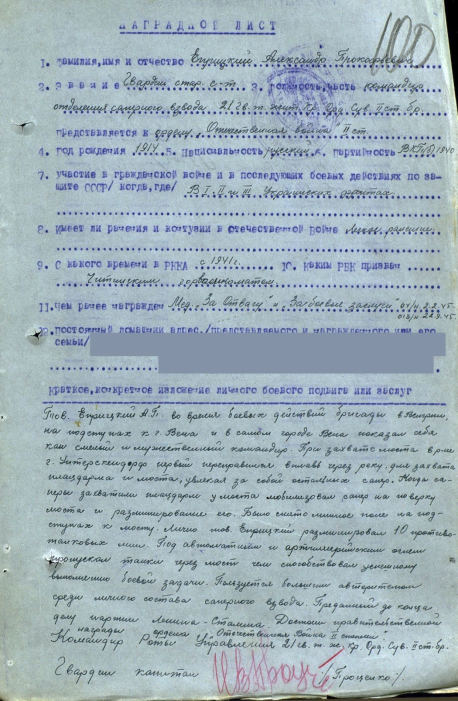 100
НАГРАДНОЙ ЛИСТ
1. Фамилия, имя и отчество Еприцкий Александр Прокофьевич
2. Звание Гвардии стар. с-т 3. Должность, часть командир
отделения саперного взвода 21 гв. т. жит. Кр. Орд. Сув. II ст. бр.
представляется к ордену "Отечественная война" II ст.
4. Год рождения 1914 5. Национальность русский 6. Партийность ВКП(б) 1940
7. участие в гражданской войне и в последующих боевых действиях по за-
щите СССР/ когда, где/ В I, II и III Украинских фронтах
8. Имеет ли ранения и контузии в отечественной войне ранение
9. С какого времени в РККА с 1941 г. 10. Каким РВК призван
Читинским горвоенкоматом
11. Чем ранее награжден Мед. "За Отвагу" и "За боевые заслуги"
постоянный домашний адрес /представляемого и награжденного или его
семьи/
краткое, конкретное изложение личного боевого подвига или заслуг
Тов. Еприцкий А.П. во время боевых действий бригады в Венгрии,
на подступах к г. Вена и в самом городе Вена показал себя
как смелый и мужественный командир. При захвате моста в р-не
г. первый переправился вплавь через реку для захвата
плацдарма и моста, увлекая за собой остальных сапер. Когда са-
перы захватили плацдарм у моста мобилизовал сапер на поверку
моста и разминирование его. Было снято минное поле на под-
ступах к мосту. Лично тов. Еприцкий разминировал 10 противо-
танковых мин. Под автоматным и артиллерийским огнем
пропускал танки через мост чем способствовал успешному
выполнению боевой задачи. Пользуется большим авторитетом
среди личного состава саперного взвода. Преданный до конца
делу партии Ленина-Сталина. Достоин правительственной
награды ордена "Отечественная Война II степени"
Командир Роты Управления 21 гв. т. ж. Кр. Орд. Сув. II ст. бр.
Гвардии капитан /Проценко/.